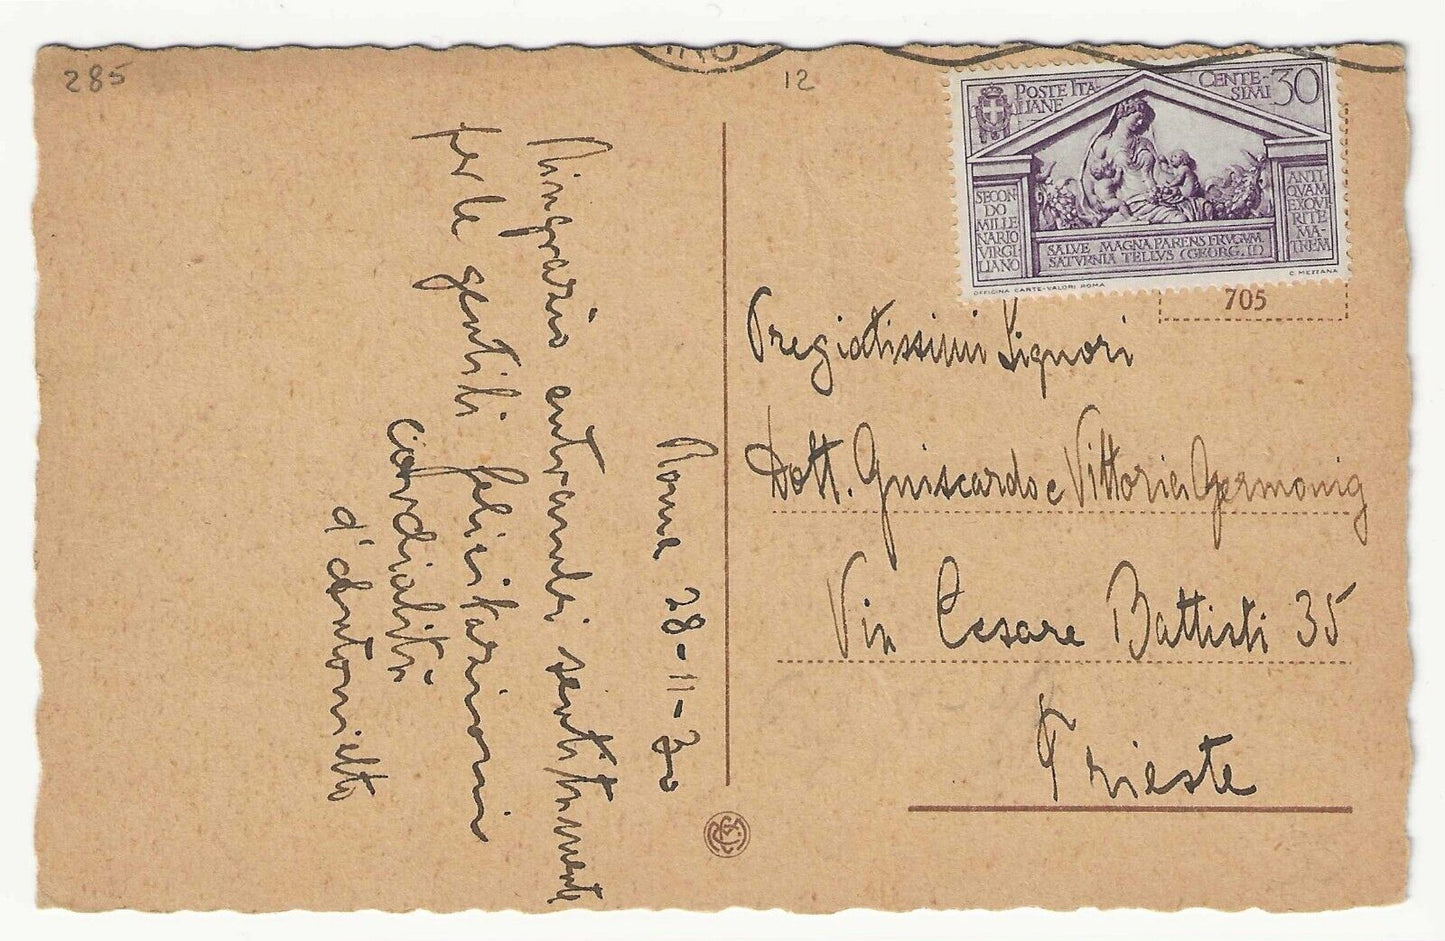 285
12
POSTE ITA-
LIANE
CENTE-
SIMI 30
SECON
DO
MILLE
NARIO
VIRGI
LIANO
ANTI
QVAM
EXQVI
RITE
MA-
TREM
SALVE MAGNA PARENS FRVGVM
SATVRNIA TELLVS (GEORG. II)
OFFICINA CARTE-VALORI ROMA
C. MEZZANA
705
Roma 28-11-30
Ringrazio entrambi sentitamente
per le gentili felicitazioni
cordialità
d'Antonietto
Pregiatissimi Signori
Dott. Guiscardo e Vittoria Germonig
Via Cesare Battisti 35
Trieste